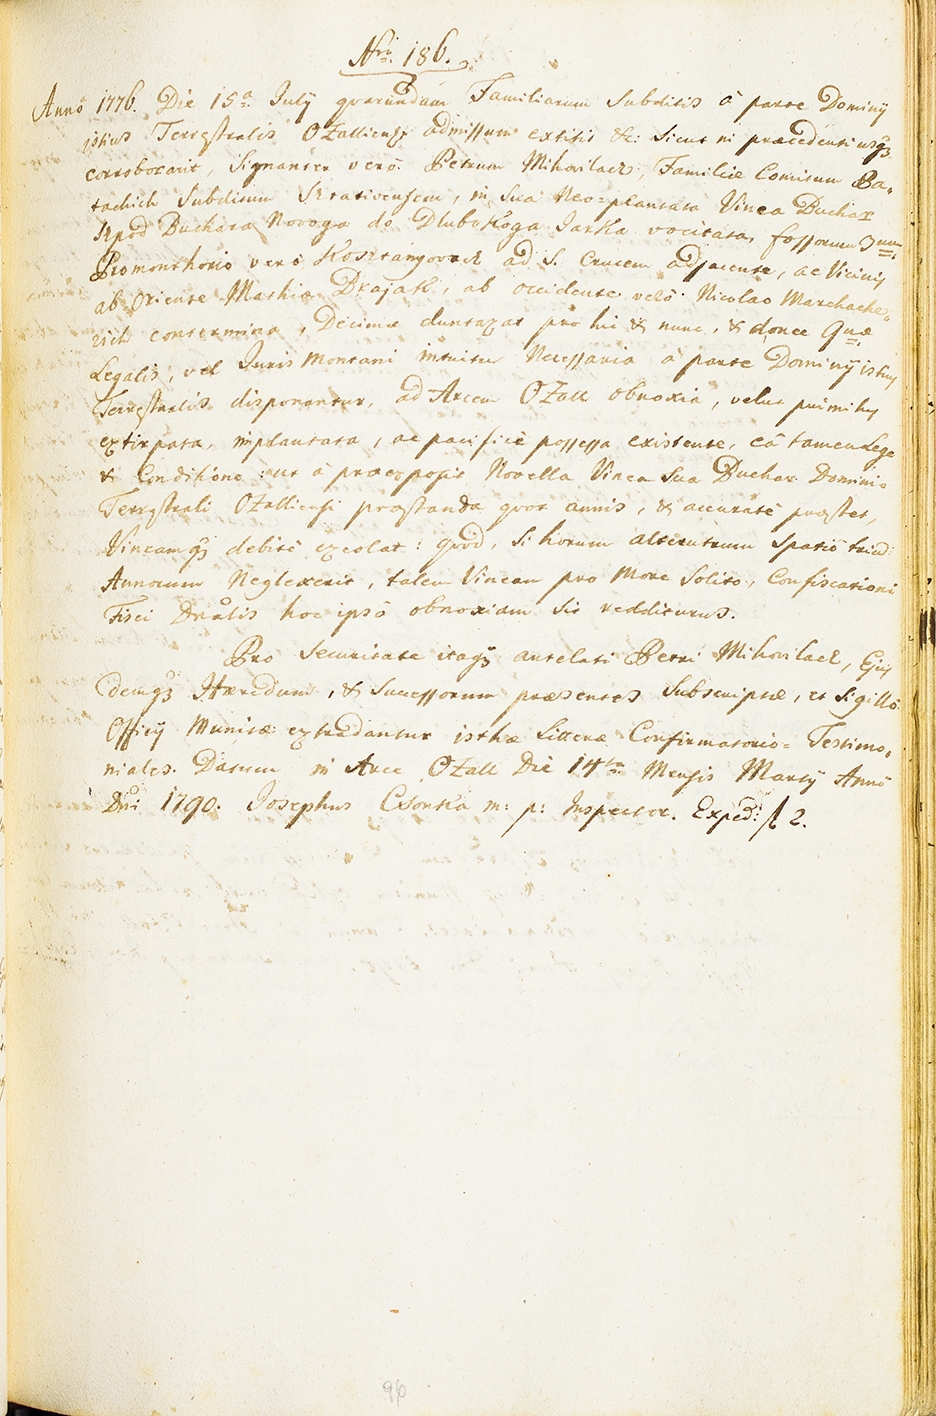 Nri 186.
Annô 1776. Die 15a July quarundam Familiarum Subditis â parte Dominij
istius Terrestralis OZalliensis admissum extitit &c: Sicut in præcedenti usq3
corroboravit, Signanter verò Petrum Mihovilach, Familiæ Comitum Ba-
tachich Subditum Sztativensem, in Sua Neo-plantata Vinea Buchar
Szpod Buchara Novoga do Dlubokoga Jarka vocitata, fossorum 3um
Promonthorio verò Kosztangovach ad S. Crucem adjacente, ac Vicinis
ab Oriente Mathia Drajak, ab occidente velò Nicolao Marchache-
vich contermina, Decimæ duntaxat pro hic & nunc, & donec Quæ
Legalis, vel Juris Montani intuitu Necessaria â parte Dominij istius
Terrestralis disponantur, ad Arcem OZall obnoxia, velut primitus
extirpata, inplantata, ac pacificè possessa existente, eâ tamen Lege
& Conditióne: ut â præexposit Novella Vinea Sua Buchar Dominio
Terrestrali OZalliensi præstanda quot annis, & accuratè præstet,
Vineamq3 debitè excolat: quòd, Si horum alterutrum Spatiô triu:
Annorum Neglexerit, talem Vineam pro More Solito, Confiscationi
Fisci Dnalis hoc ipsô obnoxiam Sit redditurus.
Pro Securitate itaq3 antelati Petri Mihovilach, Ejus
demq3 Hæredum, & Successorum præsentes Subscriptæ, et Sigillô
Officij Munitæ extradantur isthæ Litteræ Confirmatorio= Testimo-
niales. Datum in Arce OZall Die 14ta Mensis Martij Annô
Dni 1790. Josephus Csonka m: p: Inspector. Exped: fl 2.
96